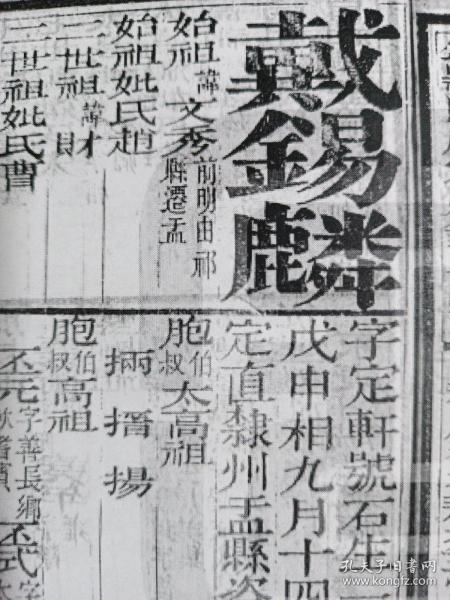 戴錫麟
始祖諱文秀前明由祁縣遷盂
始祖妣氏趙
二世祖諱財
二世祖妣氏曹
字定軒號石生一
戊申相九月十四
定直隸州盂縣次
胞伯叔太高祖
掚 搢 揚
胞伯叔高祖
丕元字善長鄉飲耆賓 丕式字
孔夫子旧书网